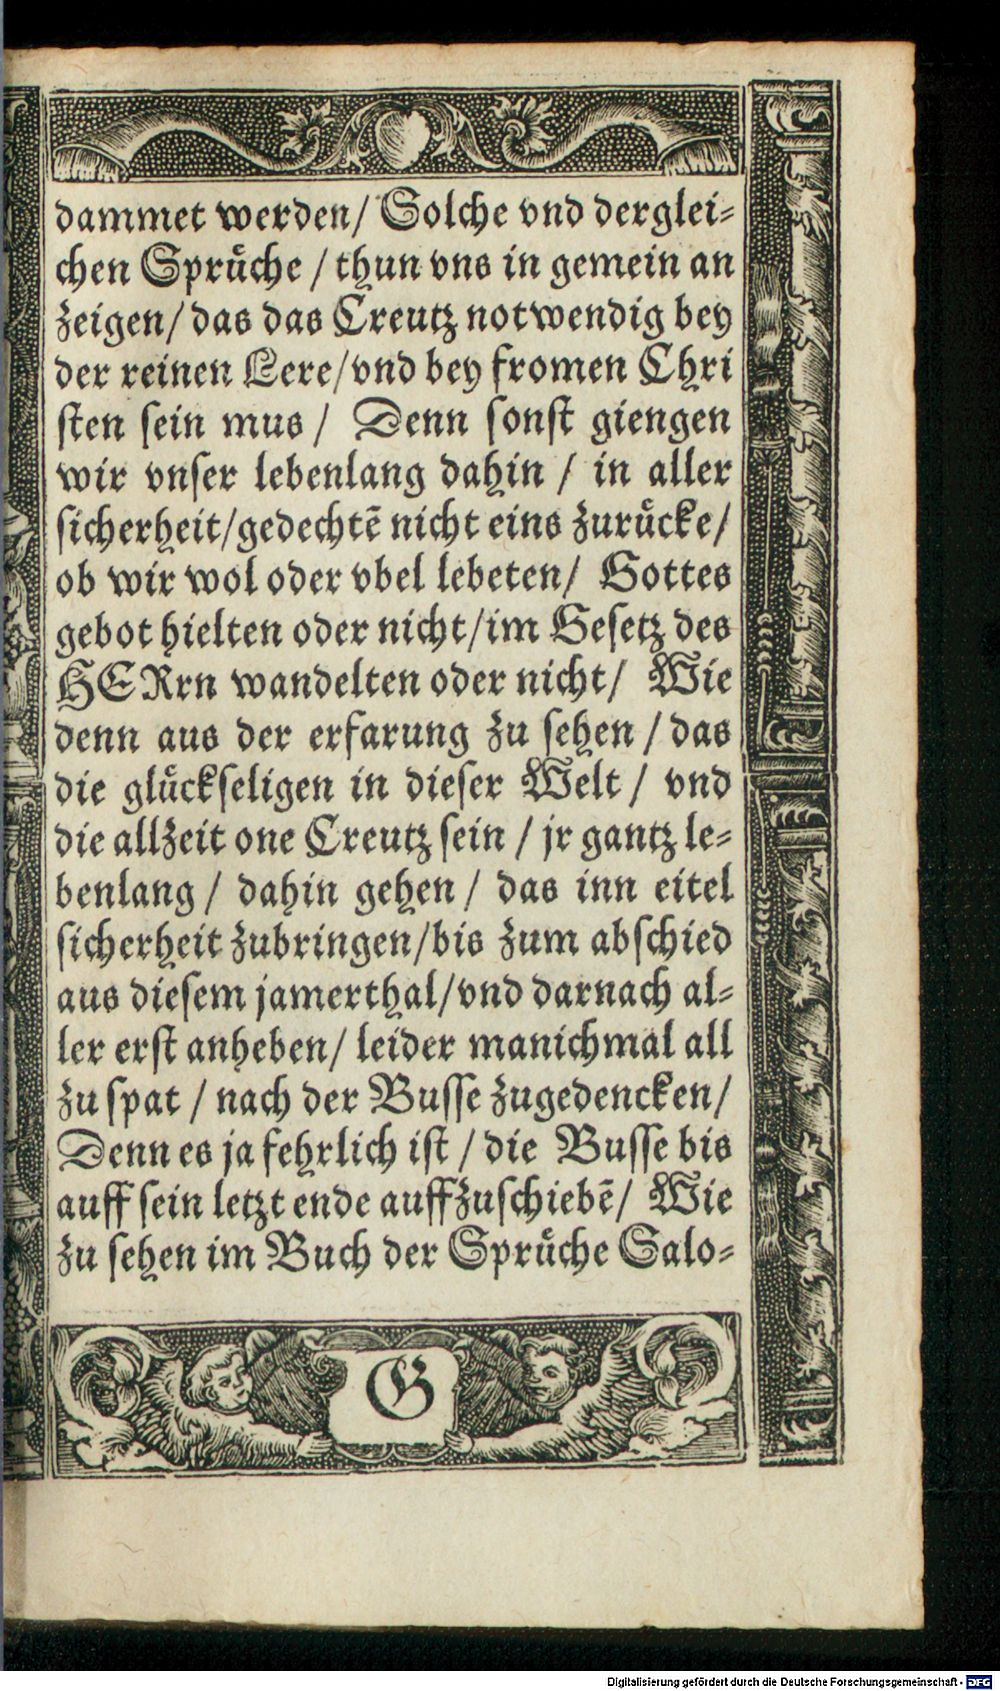 dammet werden/ Solche vnd derglei⸗
chen Spruͤche / thun vns in gemein an
zeigen/ das das Creutz notwendig bey
der reinen Lere/vnd bey fromen Chri
sten sein mus / Denn sonst giengen
wir vnser lebenlang dahin / in aller
sicherheit/gedechtē nicht eins zuruͤcke/
ob wir wol oder vbel lebeten/ Gottes
gebot hielten oder nicht/im Gesetz des
HERrn wandelten oder nicht/ Wie
denn aus der erfarung zu sehen / das
die gluͤckseligen in dieser Welt / vnd
die allzeit one Creutz sein / jr gantz le⸗
benlang / dahin gehen / das inn eitel
sicherheit zubringen/bis zum abschied
aus diesem jamerthal/vnd darnach al⸗
ler erst anheben/ leider manichmal all
zu spat / nach der Busse zugedencken/
Denn es ja fehrlich ist / die Busse bis
auff sein letzt ende auffzuschiebē/ Wie
zu sehen im Buch der Spruͤche Salo⸗
G
Digitalisierung gefördert durch die Deutsche Forschungsgemeinschaft - DFG